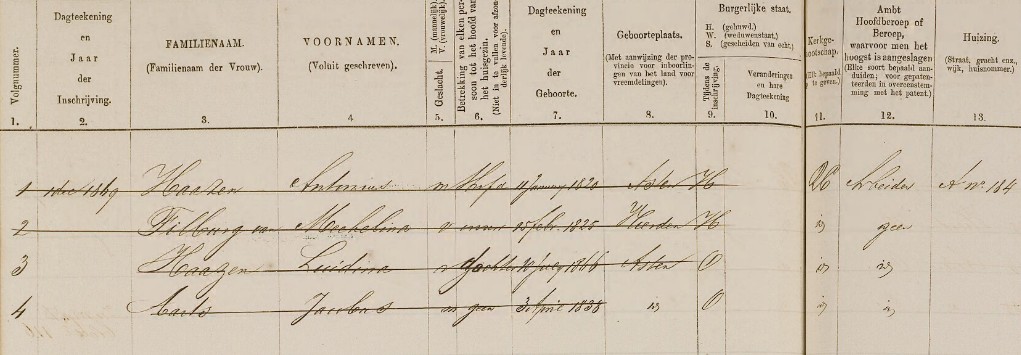 Volgnummer.
Dagteekening
en
Jaar
der
Inschrijving.
FAMILIENAAM.
(Familienaam der Vrouw).
VOORNAMEN.
(Voluit geschreven).
Geslacht. M. (mannelijk). V. (vrouwelijk).
Betrekking van elken persoon tot het hoofd van het huisgezin.
(Niet in te vullen voor afzonderlijk levende).
Dagteekening
en
Jaar
der
Geboorte.
Geboorteplaats.
(Met aanwijzing der provincie voor inboorlingen van het land voor vreemdelingen).
Burgerlijke staat.
H. (gehuwd.)
W. (weduwenstaat.)
S. (gescheiden van echt.)
Tijdens de inschrijving.
Veranderingen
en hare
Dagteekening
Kerkgenootschap.
Ambt
Hoofdberoep of
Beroep,
waarvoor men het
hoogst is aangeslagen
(Elke soort bepaald aanduiden; voor gepatenteerden in overeenstemming met het patent.)
Huizing.
(Straat, gracht enz., wijk, huisnommer.)
1. 2. 3. 4 5. 6. 7. 8. 9. 10. 11. 12. 13.
1 1 dec 1869 Haazen Antonius m Hoofd 11 January 1820 Asten H RC Arbeider A no. 184
2 Tilburg van Mechelina v vrouw 15 febr. 1825 Heerden H id geen
3 Haazen v dochter 19 july 1866 Asten O id id
4 Jacobus m geen 3 April 1838 id O id id